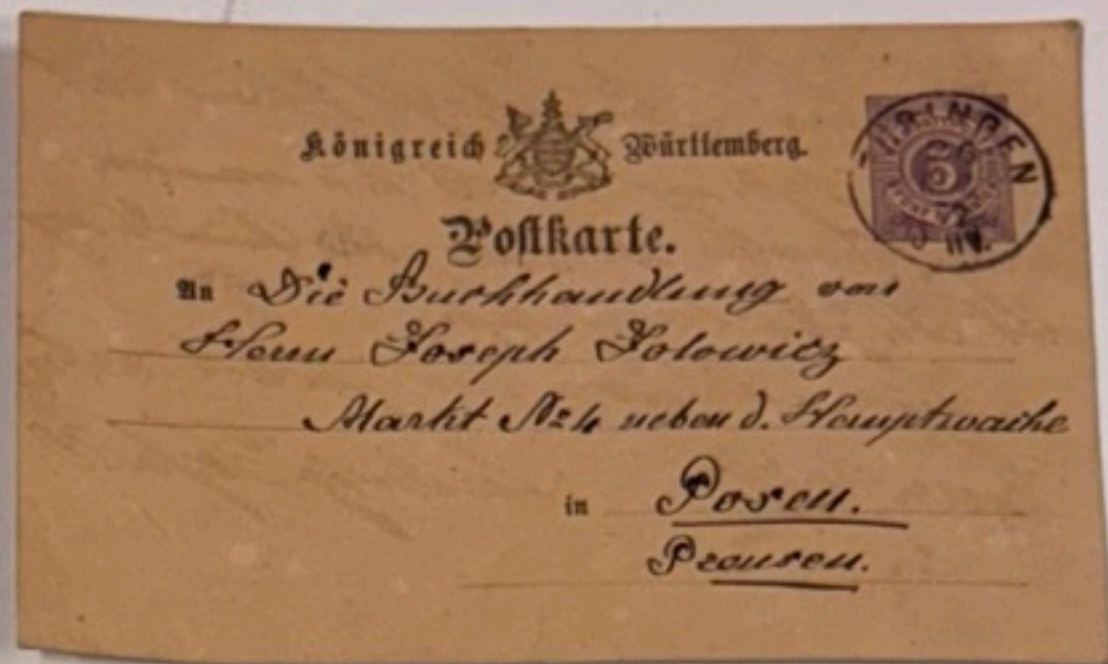 Königreich Württemberg.
TÜBINGEN
5
Postkarte.
An Die Buchhandlung von
Herrn Joseph Jolowicz
Markt No 4 neben d. Hauptwache
in Posen.
Preusen.